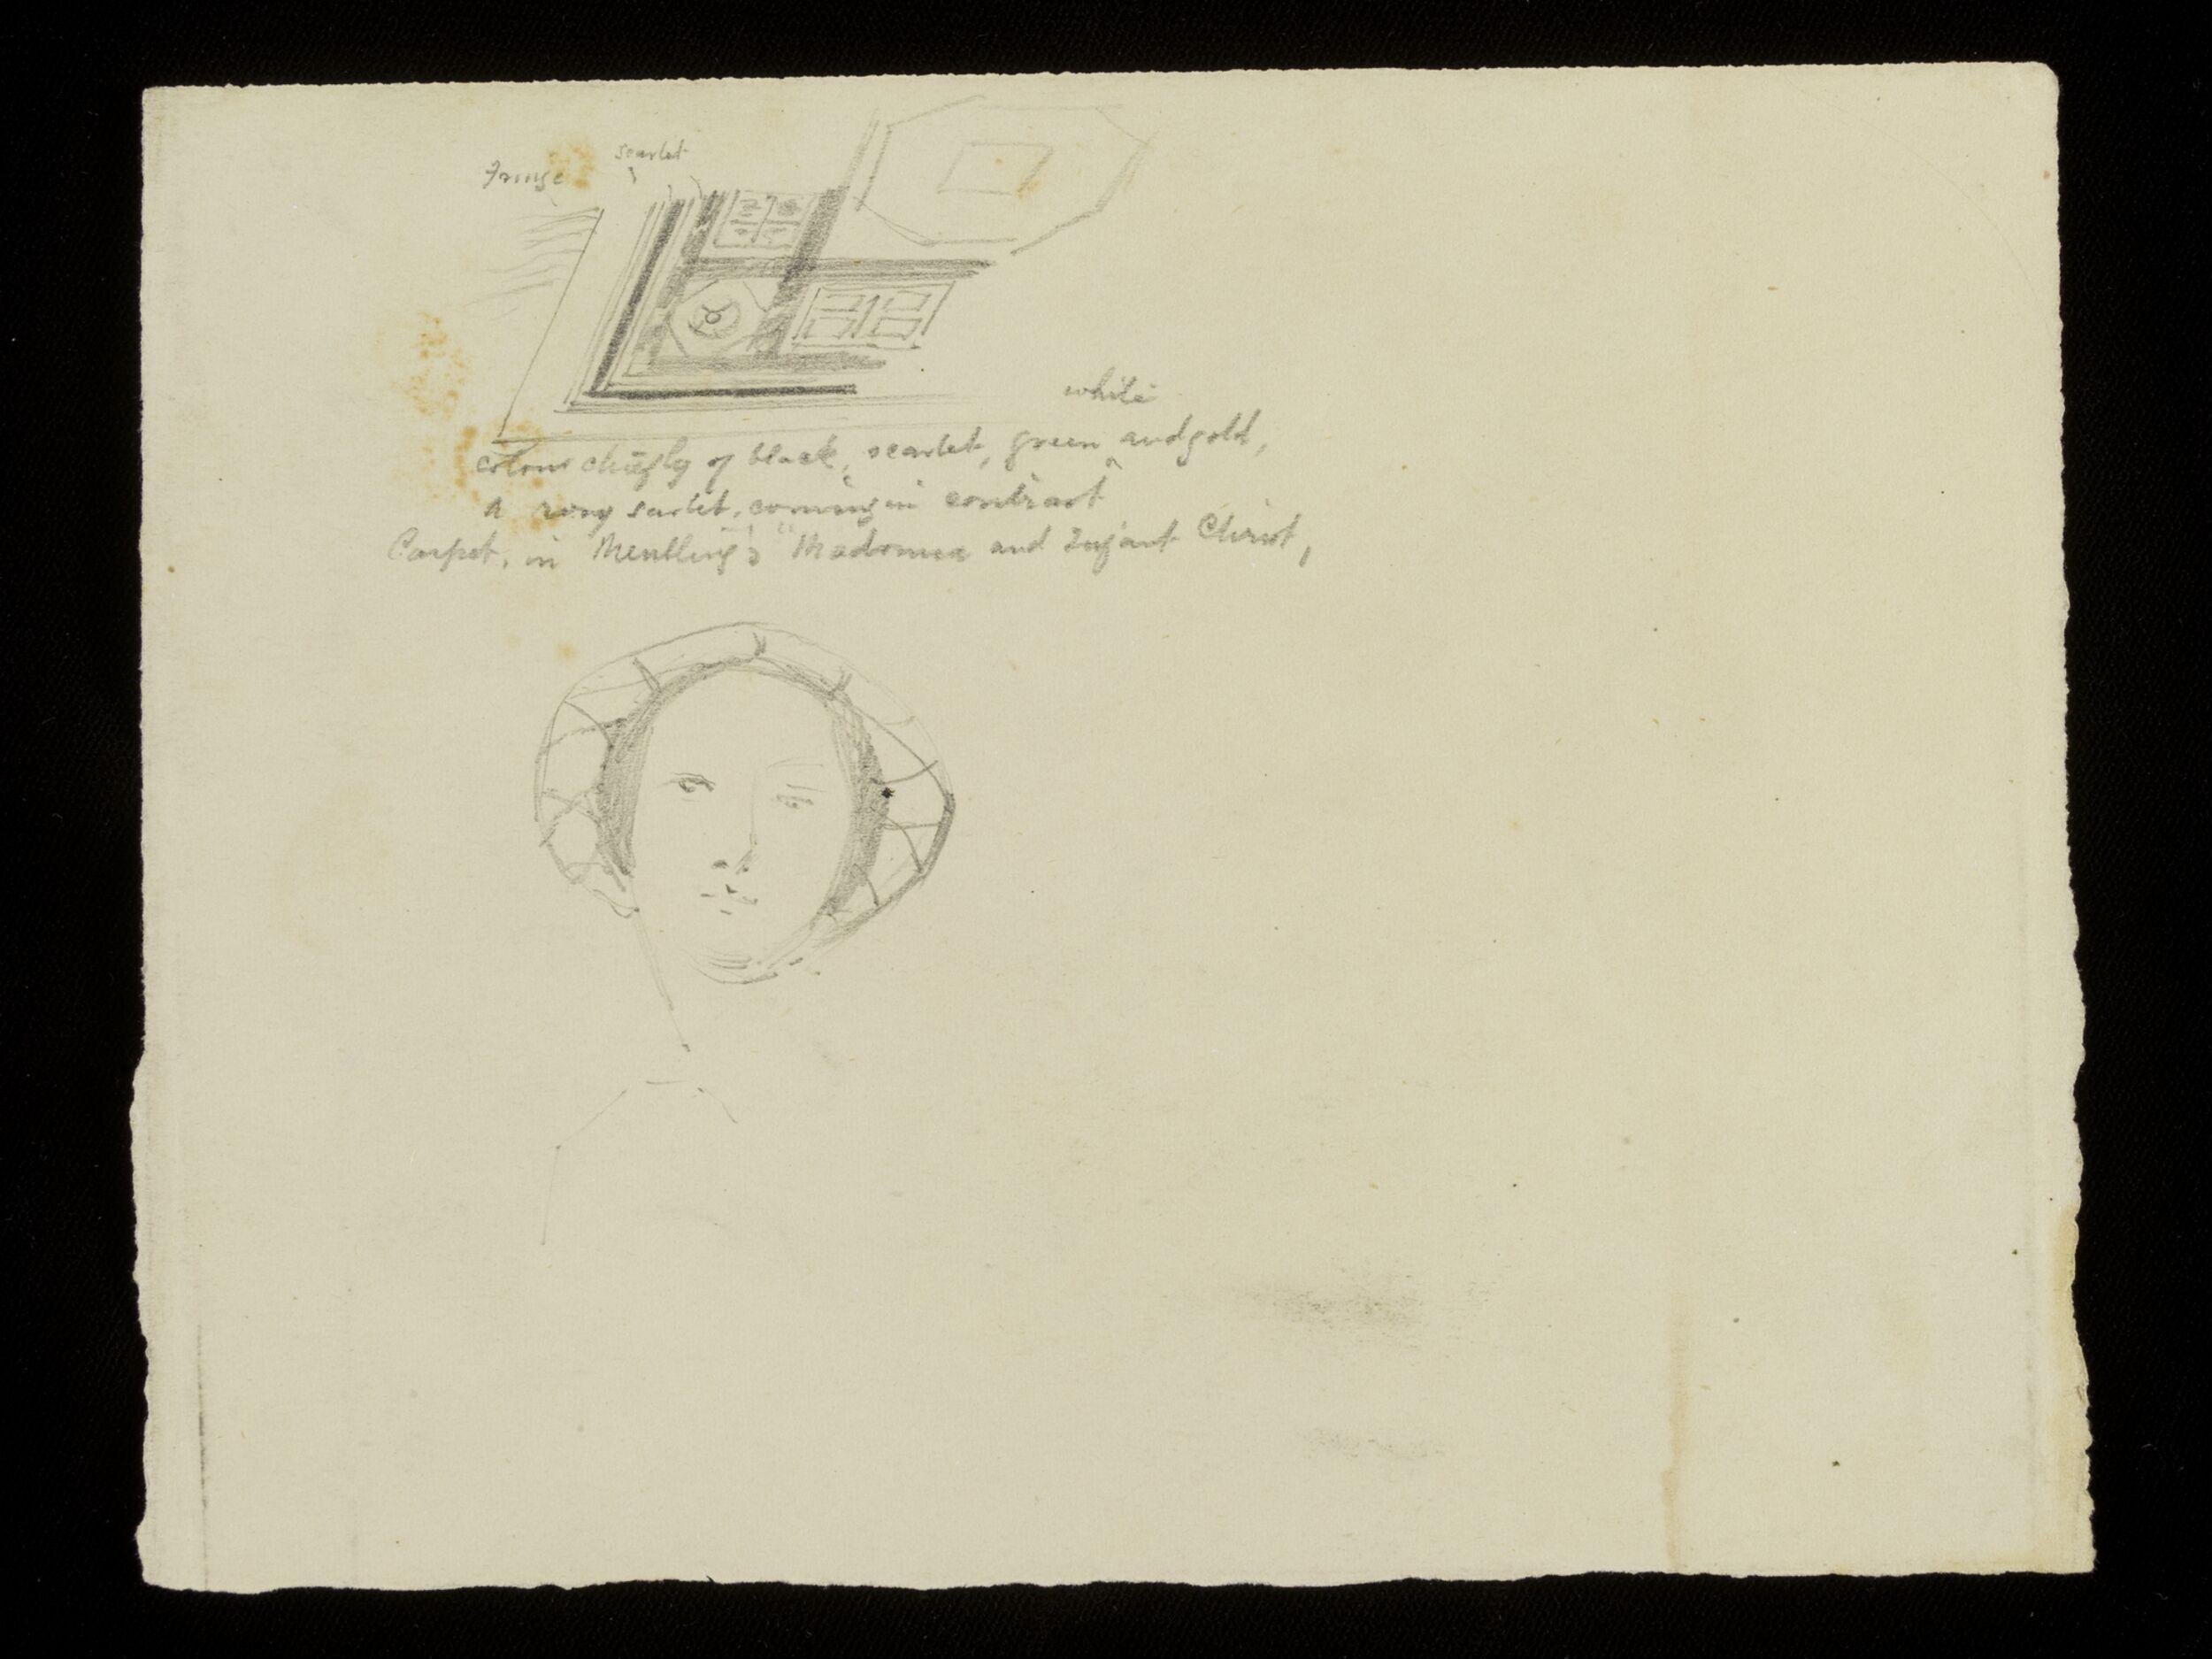 scarlet
Fringe
white
colour chiefly of black, scarlet, green ^ and gold,
a rosy sarlet, coming in contrast
Carpet, in Memlling's "Madonna and Infant Christ,